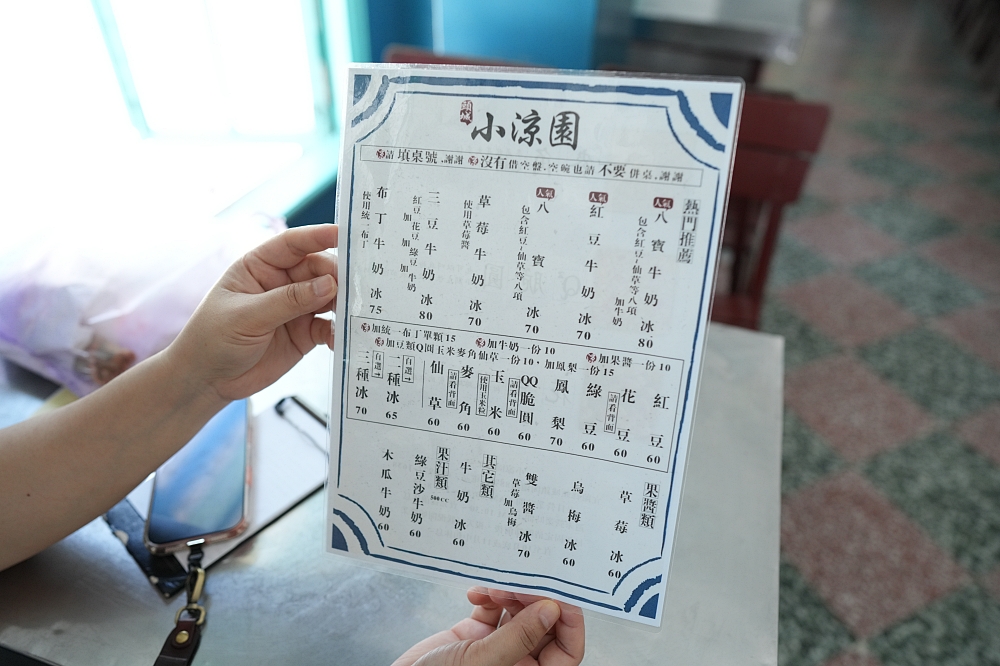 頭城
小涼園
請填桌號.謝謝 沒有借空盤.空碗也請不要併桌.謝謝
熱門推薦
人氣 八寶牛奶冰 80
包含紅豆、仙草等八項 加牛奶
人氣 紅豆牛奶冰 70
人氣 八寶冰 70
包含紅豆、仙草等八項
草莓牛奶冰 70
使用草莓醬
三豆牛奶冰 80
紅豆 加花豆 加綠豆 加牛奶
布丁牛奶冰 75
使用統一布丁
加統一布丁單顆15 加牛奶一份10 加果醬一份10
加豆類QQ圓玉米麥角仙草一份10、加鳳梨一份15
紅豆 60
花豆 60
請看背面
綠豆 60
鳳梨 70
QQ脆圓 60
請看背面
玉米 60
使用玉米粒
麥角 60
請看背面
仙草 60
自選→
二種冰 65
自選→
三種冰 70
果醬類
草莓冰 60
烏梅冰 60
雙醬冰 70
草莓加烏梅
其它類
牛奶冰 60
果汁類
500CC
綠豆沙牛奶 60
木瓜牛奶 60